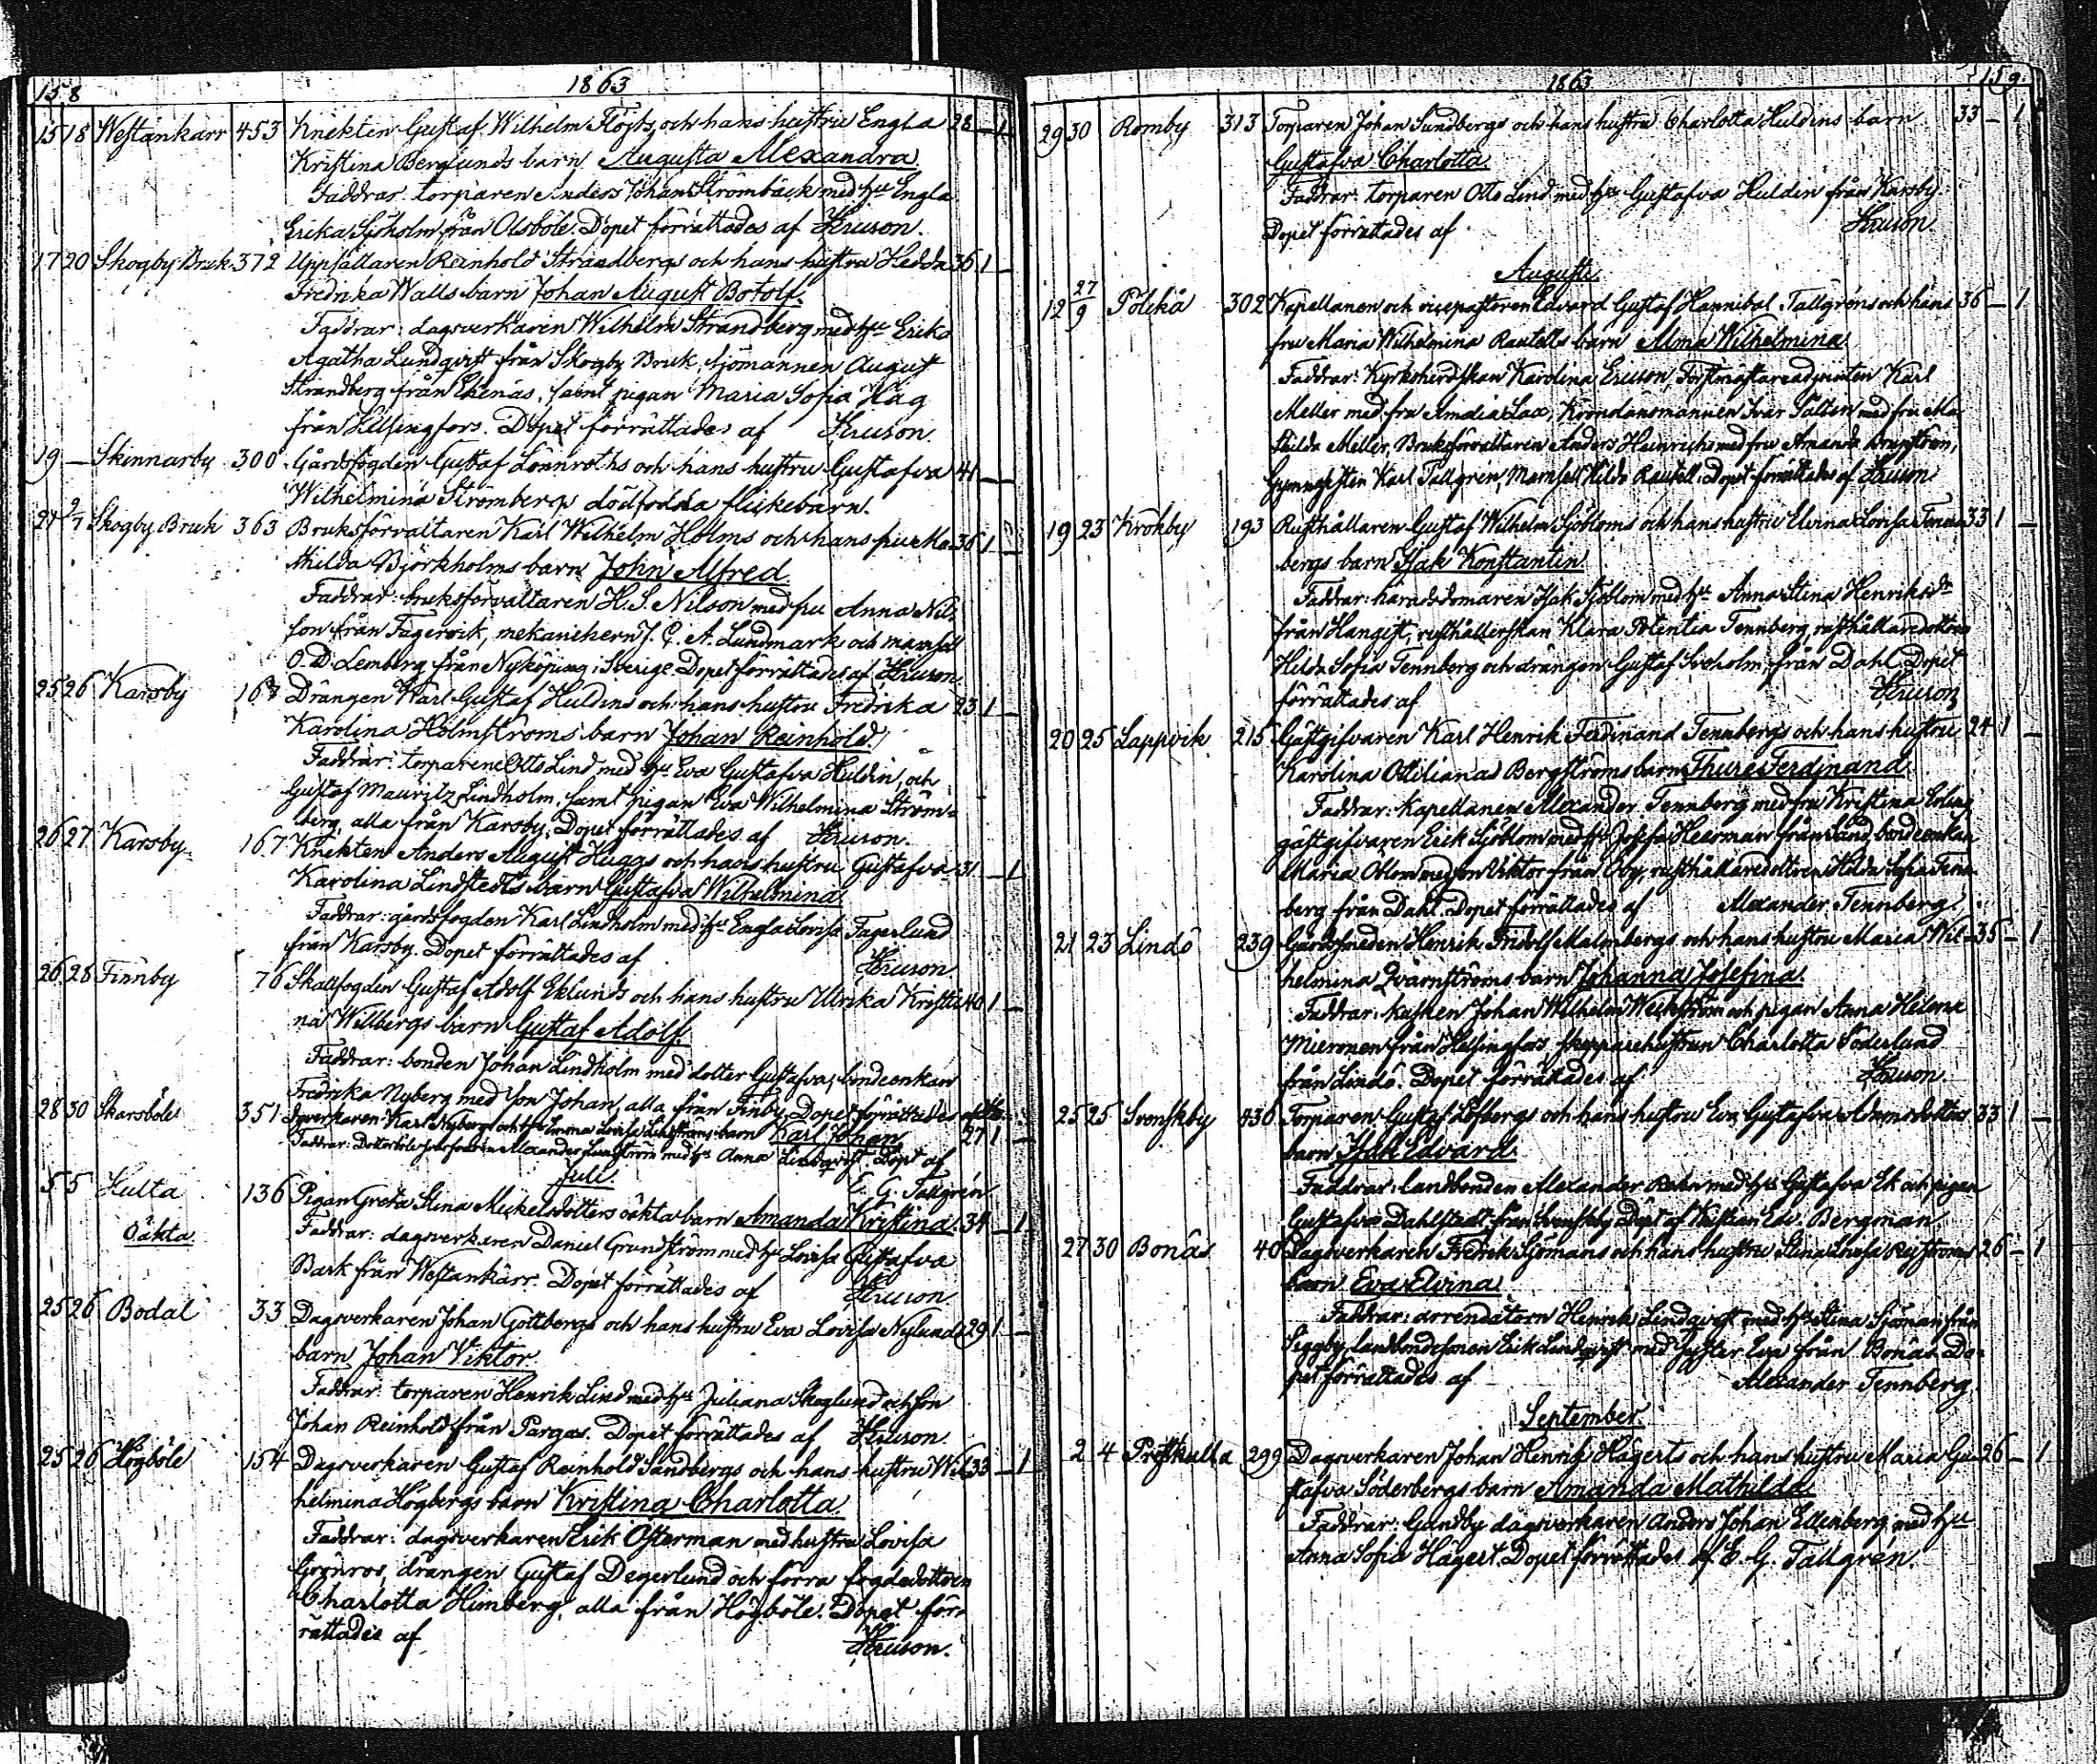 158
1863
15 18 Westankärr 453 Knekten Gustaf Wilhelm Flöjts och hans hustru Engla 28 – 1
Kristina Berglunds barn Augusta Alexandra.
Faddrar: torparen Anders Johan Strömbäck med hu Engla
Erika Sjöholm från Olsböle. Dopet förrättades af
17 20 Skogby Bruk 372 Uppsättaren Reinhold Strandbergs och hans hustru Hedda 36 1 –
Fredrika Walls barn Johan August Botolf.
Faddrar: dagsverkaren Wilhelm Strandberg med hu Erika
Agatha Lundqvist från Skogby Bruk, sjömannen August
Strandberg från Ekenäs, samt pigan Maria Sofia Hag
från Helsingfors. Dopet förrättades af
19 – Skinnarby 300 Gårdsfogden Gustaf Lönnroths och hans hustru Gustafva 41 – –
Wilhelmina Strömbergs dödfödda flickebarn.
24 2/7 Skogby Bruk 363 Bruksförvaltaren Karl Wilhelm Holms och hans fru Ma- 36 1 –
thilda Björkholms barn John Alfred.
Faddrar: bruksförvaltaren H. S. Nilson med fru Anna Nil-
son från Fagervik, mekanikern J. C. A. Lundmark och mamsell
O. D. Lemberg från Nyköping i Sverige. Dopet förrättades af
25 26 Karsby 167 Drängen Karl Gustaf Huldins och hans hustru Fredrika 23 1 –
Karolina Holmströms barn Johan Reinhold.
Faddrar: torparene Otto Lind med hu Eva Gustafva Huldin, och
Gustaf Mauritz Lindholm, samt pigan Eva Wilhelmina Ström-
berg, alla från Karsby. Dopet förrättades af
26 27 Karsby 167 Knekten Anders August Huggs och hans hustru Gustafva 31 – 1
Karolina Lindstedts barn Gustafva Wilhelmina.
Faddrar: gårdsfogden Karl Lindholm med hu Engla Lovisa Fagerlund
från Karsby. Dopet förrättades af
26 28 Finnby 76 Skallfogden Gustaf Adolf Eklunds och hans hustru Ulrika Kristi- 40 1 –
na Willbergs barn Gustaf Adolf.
Faddrar: bonden Johan Lindholm med dotter Gustafva, bondeenkan
Fredrika Nyberg med son Johan, alla från Finby. Dopet förrättades af
28 30 Skarsböle 351 Dagsverkaren Karl Nybergs och hu Emma Lovisa Lindströms barn Karl Johan 27 1 –
Faddrar: Alexander Lundström med hu Anna Lindqvist. Dopet af
Juli. E. G. Tallgrén
5 5 Hulta 136 Pigan Greta Stina Mickelsdotters oäkta barn Amanda Kristina. 34 – 1
oäkta Faddrar: dagsverkaren Daniel Grunström med hu Lovisa Gustafva
Bark från Westankärr. Dopet förrättades af
25 26 Bodal 33 Dagsverkaren Johan Gottbergs och hans hustru Eva Lovisa Nylunds 29 1 –
barn Johan Viktor.
Faddrar: torparen Henrik Lind med hu Juliana Skoglund och son
Johan Reinhold från Pargas. Dopet förrättades af
25 26 Högböle 154 Dagsverkaren Gustaf Reinhold Sandbergs och hans hustru Wil- 33 – 1
helmina Högbergs barn Kristina Charlotta.
Faddrar: dagsverkaren Erik Österman med hustru Lovisa
Grönros, drängen Gustaf Degerlund och förra fogdedottren
Charlotta Himberg, alla från Högböle. Dopet för-
rättades af
1863
159
29 30 Romby 313 Torparen Johan Sundbergs och hans hustru Charlotta Huldins barn 33 – 1
Gustafva Charlotta.
Faddrar: torparen Otto Lind med hu Gustafva Huldin från Karsby.
Dopet förrättades af
Augusti
12 27/9 Polska 302 Kapellanen och vicepastoren Edvard Gustaf Hannibal Tallgréns och hans 36 – 1
fru Maria Wilhelmina Rautells barn Alma Wilhelmina
Faddrar: Kyrkoherdskan Karolina, Forstmästareadjunten Karl
Meller med fru Amalia, Kronolänsmannen Ivar Taltén med fru Ma-
thilda Meller, Bruksförvaltaren Anders Heinrichs med fru Amanda,
Gymnasisten Karl Tallgrén, Mamsell Hilda Rautell. Dopet förrättades af
19 23 Krokby 193 Rusthållaren Gustaf Wilhelm Sjöbloms och hans hustru Elvina Lovisa Tenn- 33 1 –
bergs barn Isak Konstantin
Faddrar: häradsdomaren Isak Sjöblom med hu Anna Stina Henriksdr
från Hangist, rusthållerskan Klara Potentia Tennberg, rusthållaredottren
Hilda Sofia Tennberg och drängen Gustaf Sveholm, från Dahl. Dopet
förrättades af
20 25 Lappvik 215 Gästgifvaren Karl Henrik Ferdinand Tennbergs och hans hustru 24 1 –
Karolina Ottiliana Bergströms barn Thure Ferdinand
Faddrar: Kapellanen Alexander Tennberg med fru Kristina Erling,
gästgifvaren Erik Sjöblom med hu Josefa Heerman från Sand, bondeenkan
Maria Oblom med son Viktor från Öby, rusthållaredottren Hilda Sofia Tenn-
berg från Dahl. Dopet förrättades af Alexander Tennberg.
21 23 Lindö 239 Gårdssmeden Henrik Fridolf Malmbergs och hans hustru Maria Wil- 35 – 1
helmina Qvarnströms barn Johanna Josefina.
Faddrar: kusken Johan Wilhelm Weckström och pigan Anna Helena
Mieronen från Helsingfors, skepparehustrun Charlotta Söderlund
från Lindö. Dopet förrättades af
25 25 Svenskby 436 Torparen Gustaf Löfbergs och hans hustru Eva Gustafva Adamsdotters 33 1 –
barn Isak Edvard.
Faddrar: landbonden Alexander med hu Gustafva Ek och pigan
Gustafva Dahlstedt från Svenskby. Dopet af Kristian Edv. Bergman
27 30 Bonäs 40 Dagsverkaren Fredrik Sjömans och hans hustru Stina Lovisa 26 – 1
barn Eva Elvina
Faddrar: arrendatorn Henrik Lindqvist med hu Stina Sjöman från
Siggby, landbondesonen Erik Lindqvist med syster Eva från Bonäs. Do-
pet förrättades af Alexander Tennberg.
September.
2 4 Prestkulla 299 Dagsverkaren Johan Henrik Hägerts och hans hustru Maria Gu- 26 – 1
stafva Söderbergs barn Amanda Mathilda.
Faddrar: Gundby dagsverkaren Anders Johan Ellenberg med hu
Anna Sofia Hägert. Dopet förrättades af E. G. Tallgrén.